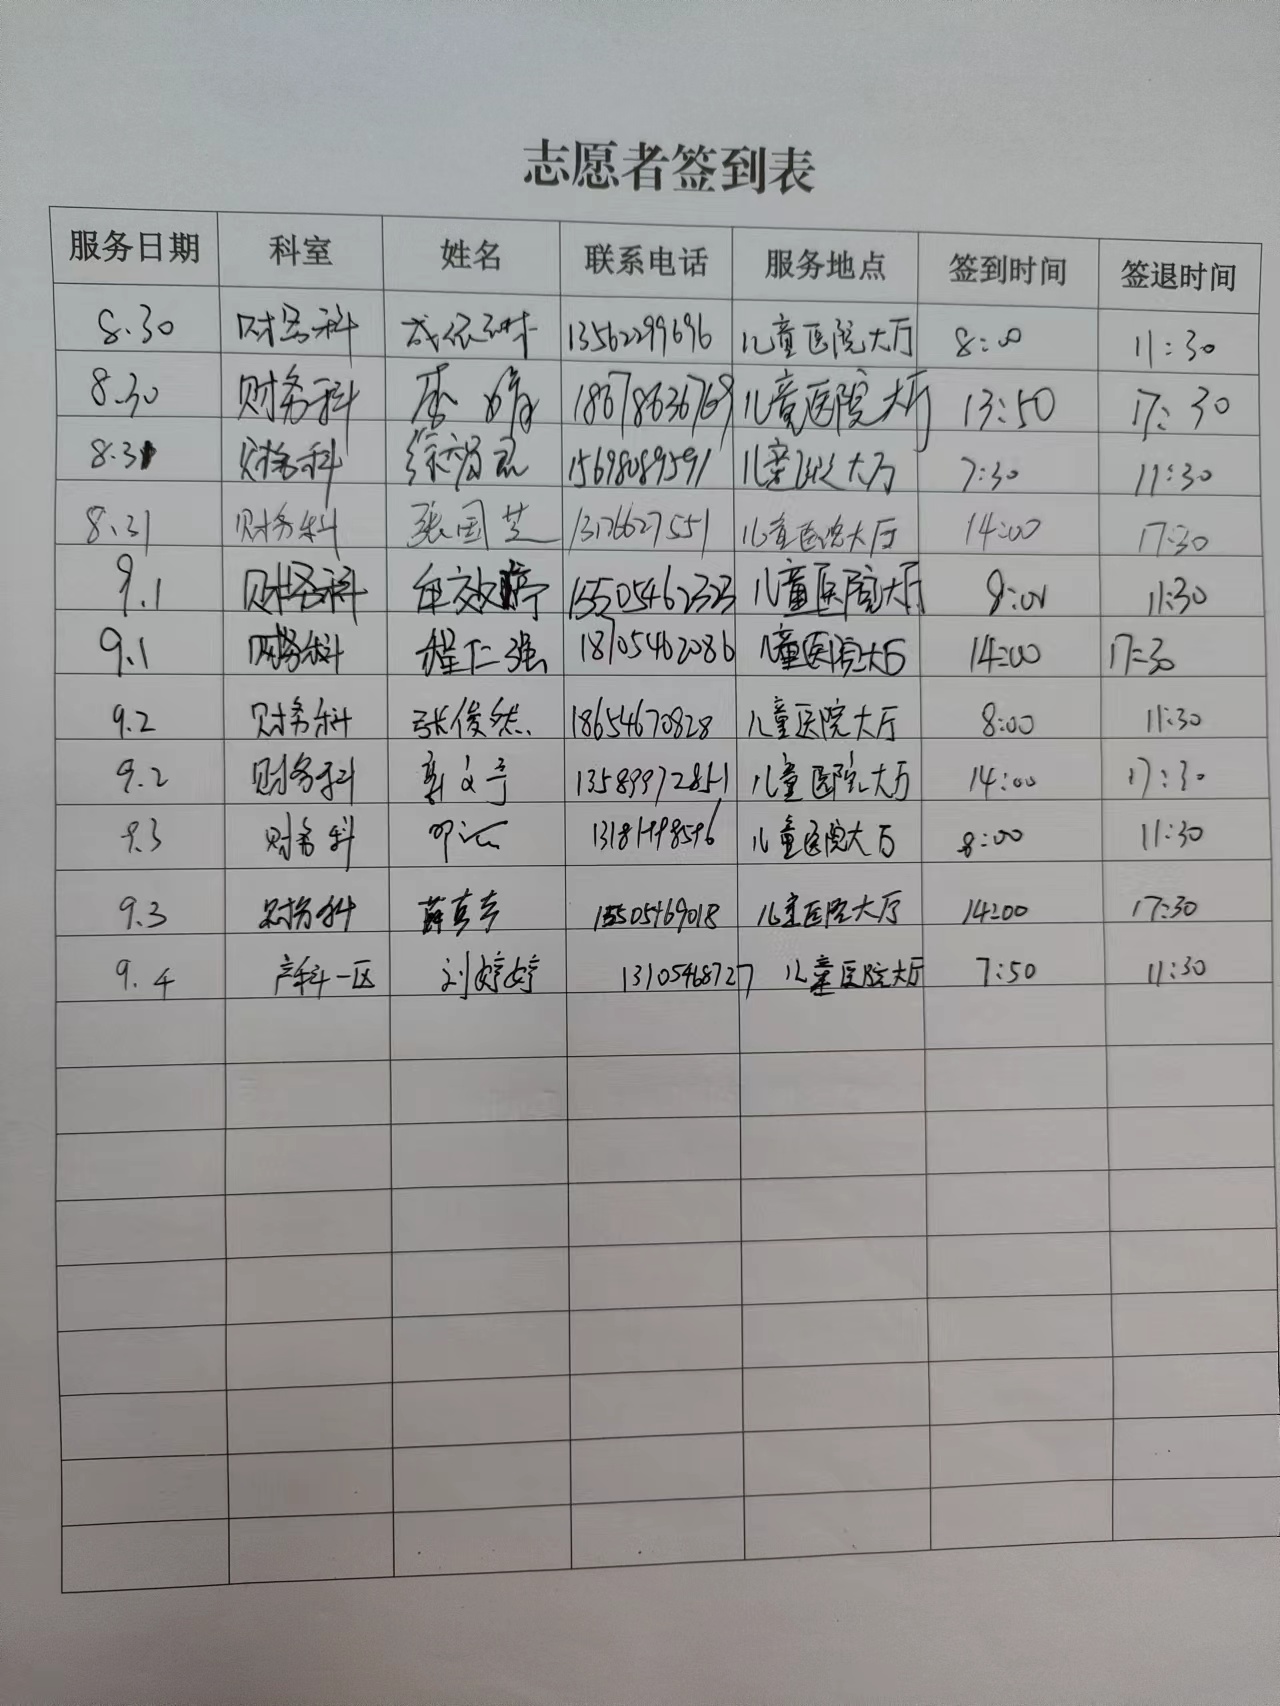 志愿者签到表
服务日期 科室 姓名 联系电话 服务地点 签到时间 签退时间
8.30 财务科 13562299696 儿童医院大厅 8:00 11:30
8.30 财务科 李婧 18678636769 儿童医院大厅 13:50 17:30
8.31 财务科 15698089591 儿童医院大厅 7:30 11:30
8.31 财务科 张国芝 13176627551 儿童医院大厅 14:00 17:30
9.1 财务科 15505462323 儿童医院大厅 8:00 11:30
9.1 财务科 程仁强 18705462086 儿童医院大厅 14:00 17:30
9.2 财务科 张俊然 18654670828 儿童医院大厅 8:00 11:30
9.2 财务科 郭文宁 13589972851 儿童医院大厅 14:00 17:30
9.3 财务科 儿童医院大厅 8:00 11:30
9.3 财务科 15505469018 儿童医院大厅 14:00 17:30
9.4 产科一区 刘婷婷 13105468727 儿童医院大厅 7:50 11:30